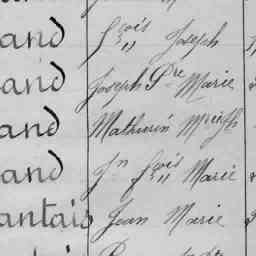 and F^çois Joseph
and Joseph P^re Marie
and Mathurin M^rie J^h
and J^n F^çois Marie
antais Jean Marie